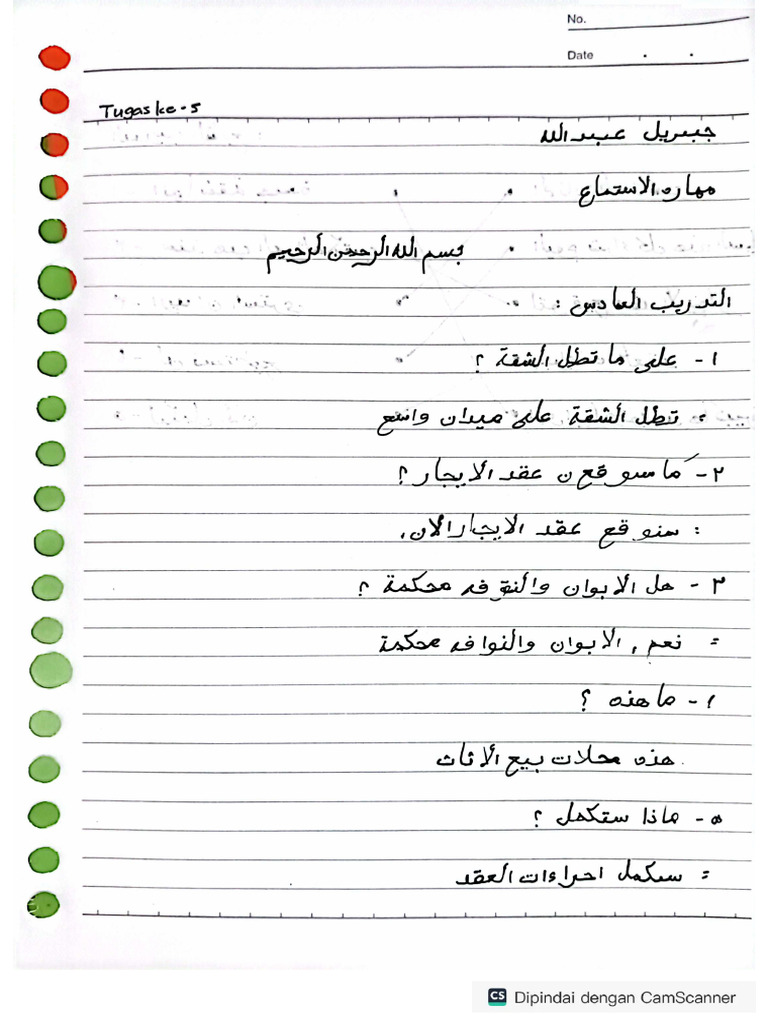 No.
Date
Tugas ke-5
جبريل عبد الله
مهاره الاستماع
بسم الله الرحمن الرحيم
التدريب السادس :
١- على ما تطل الشقة ؟
: تطل الشقة على ميدان واسع
٢- ما سوقعن عقد الايجار ؟
: سنوقع عقد الايجار الان.
٣- هل الابوان والنوفد محكمة ؟
: نعم , الابوان والنوافد محكمة
١- ما هذه ؟
هذه محلات بيع الاثاث
٥- ماذا ستكمل ؟
: سيكمل اجراءات العقد
CS Dipindai dengan CamScanner